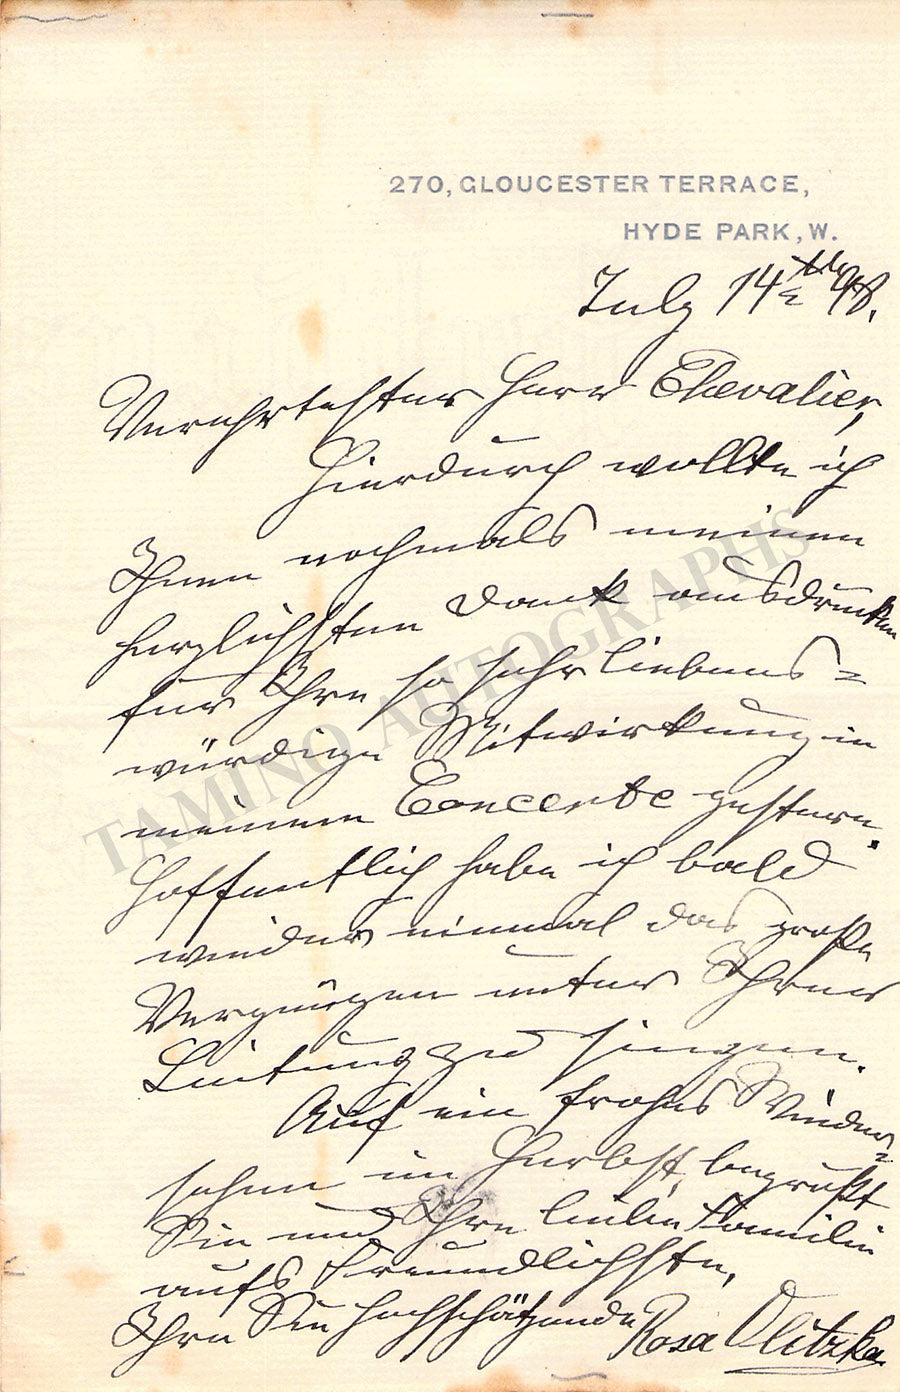 270, GLOUCESTER TERRACE,
HYDE PARK, W.
July 14th 98.
Verehrtester Herr Chevalier,
Hierdurch wollte ich
Ihnen nochmals meinen
herzlichsten Dank ausdrücken
für Ihre so sehr liebens=
würdige Mitwirkung in
meinem Concerte gestern.
Hoffentlich habe ich bald
wieder einmal das große
Vergnügen unter Ihrer
Leitung zu singen.
Auf ein frohes Wieder=
sehen im Herbst, begrüßt
Sie und Ihre liebe Familie
aufs Freundlichste,
Ihre Sie hochschätzende Rosa Olitzka
TAMINO AUTOGRAPHS